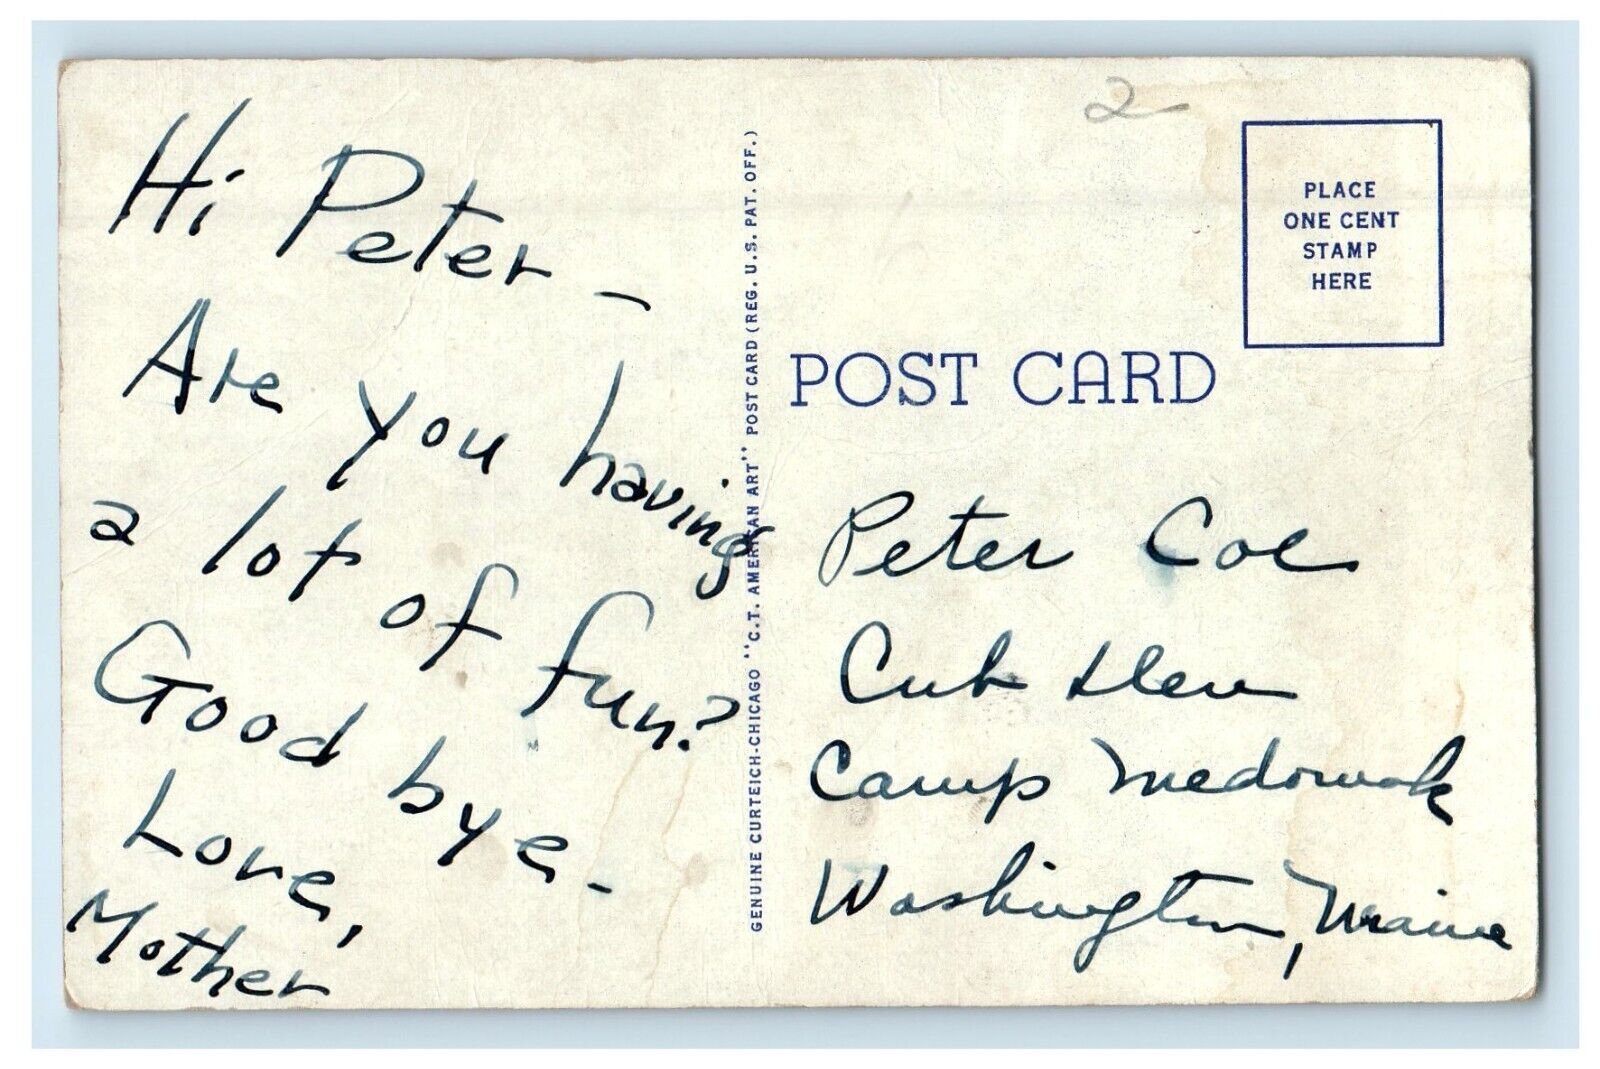 Hi Peter –
Are you having
a lot of fun?
Good bye.
Love,
Mother
GENUINE CURTEICH-CHICAGO "C.T. AMERICAN ART" POST CARD (REG. U.S. PAT. OFF.)
2-
PLACE
ONE CENT
STAMP
HERE
POST CARD
Peter Coe
Cub
Camp Medomak
Washington, Maine